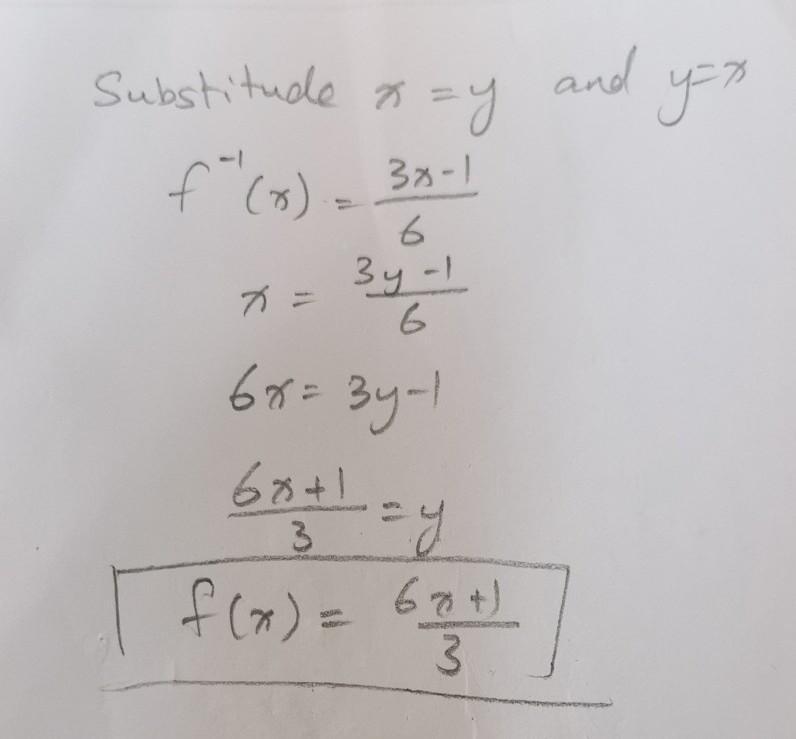 Substitude x = y and y=x
f⁻¹(x) = (3x-1)/6
x = (3y-1)/6
6x = 3y-1
(6x+1)/3 = y
f(x) = (6x+1)/3